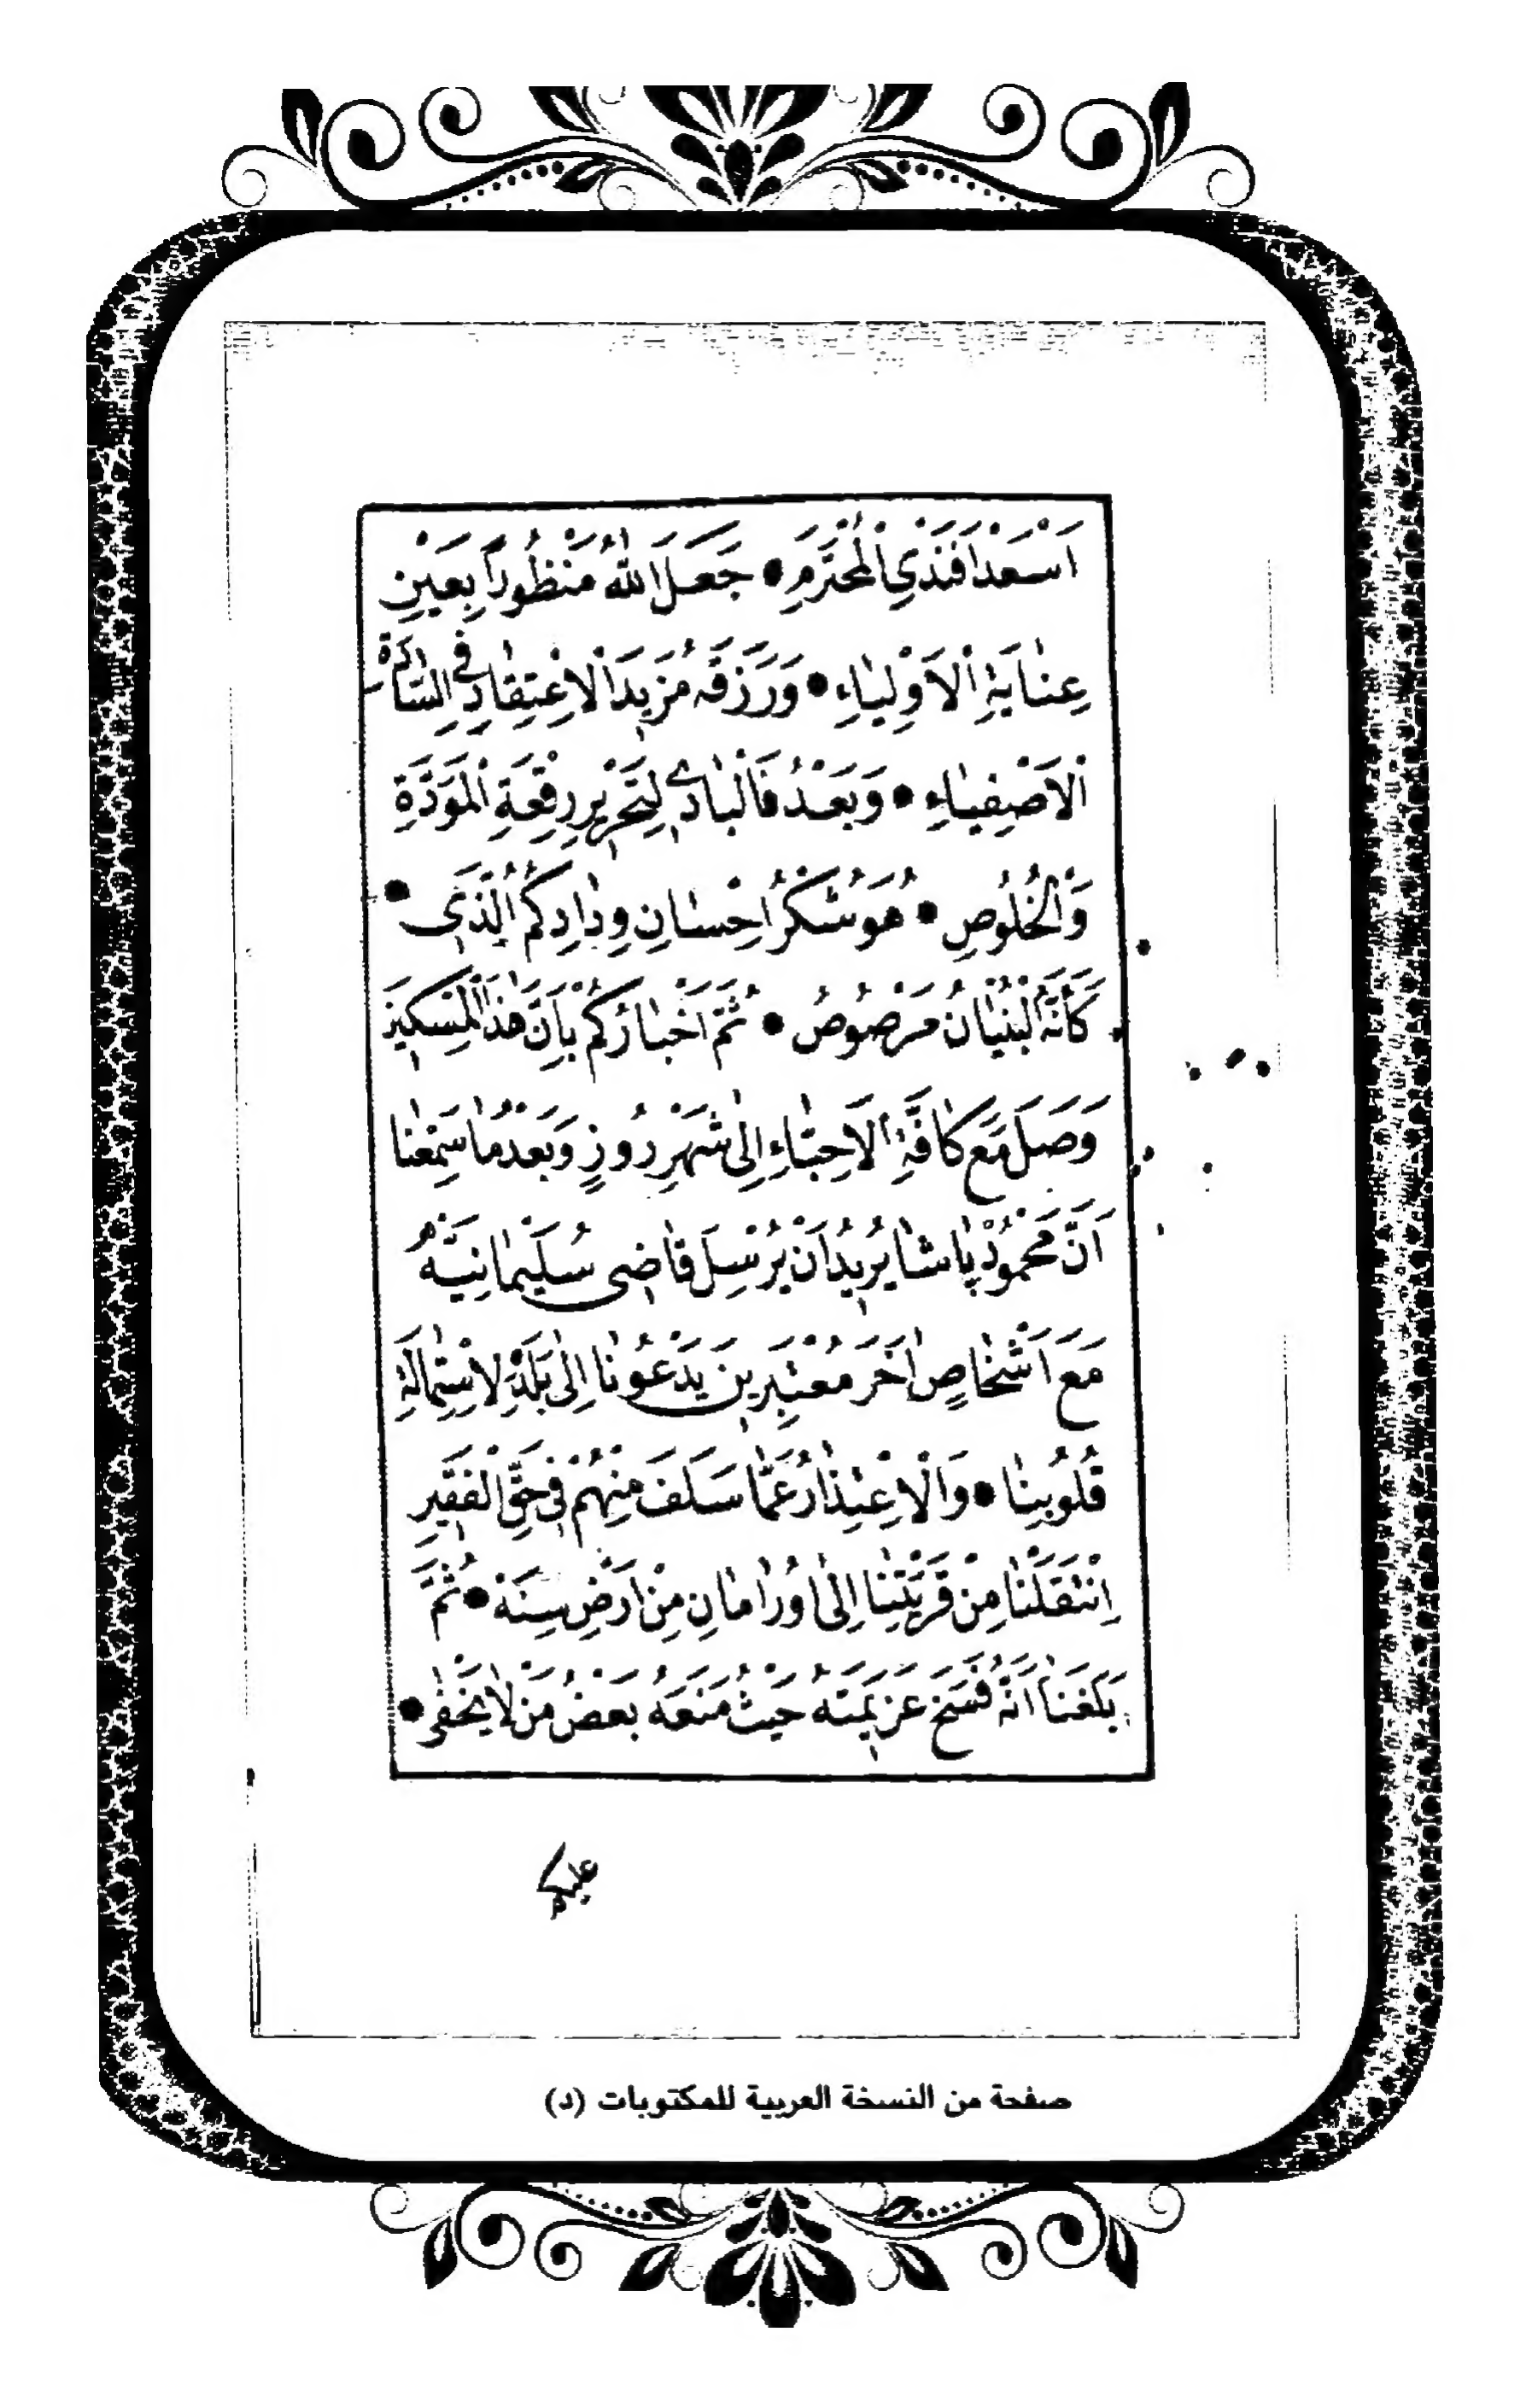 اَسْعَدْ اَفَنْدِي الْمُحْتَرَمِ • جَعَلَ اللهُ مَنْظُوراً بِعَيْنِ
عِنَايَةِ الْاَوْلِيَاءِ • وَرَزَقَهُ مَزِيدَ الْاِعْتِقَادِ فِي السَّادَةِ
الْاَصْفِيَاءِ • وَبَعْدُ فَالْبَادِي لِتَحْرِيرِ رِقْعَةِ الْمَوَدَّةِ
وَالْخُلُوصِ • هُوَ شُكْرُ اِحْسَانِ وِدَادِكُمُ الَّذِي •
كَأَنَّهُ بُنْيَانٌ مَرْصُوصٌ • ثُمَّ اَخْبَارُكُمْ بِاَنَّ هٰذَا الْمِسْكِينَ
وَصَلَ مَعَ كَافَّةِ الْاَحِبَّاءِ اِلَى شَهْرِ رُوزٍ وَبَعْدَ مَا سَمِعْنَا
اَنَّ مَحْمُودْ پَاشَا يُرِيدُ اَنْ يُرْسِلَ قَاضِي سُلَيْمَانِيَّهْ
مَعَ اَشْخَاصٍ اٰخَرَ مُعْتَبِرِينَ يَدْعُونَا اِلَى بَلَدِهِ لِاسْتِمَالَةِ
قُلُوبِنَا • وَالْاِعْتِذَارُ عَمَّا سَلَفَ مِنْهُمْ فِي حَقِّ الْفَقِيرِ
اِنْتَقَلْنَا مِنْ قَرْيَتِنَا اِلَى اَوُرَامَانِ مِنْ اَرْضِ سِنَهْ • ثُمَّ
بَلَغَنَا اَنَّهُ فَسَخَ عَزِيمَتَهُ حَيْثُ مَنَعَهُ بَعْضُ مَنْ لَا يَخْفَى •
عليكم
صفحة من النسخة العربية للمكتوبات (د)